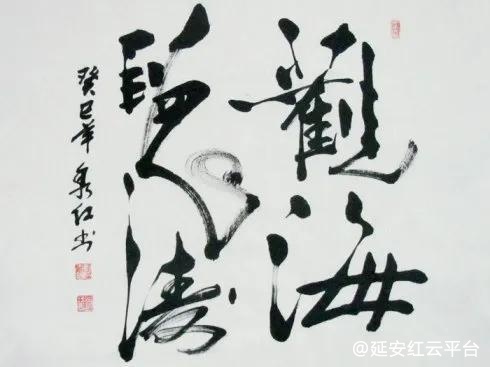 觀海
聽濤
癸巳年 红书
@延安红云平台